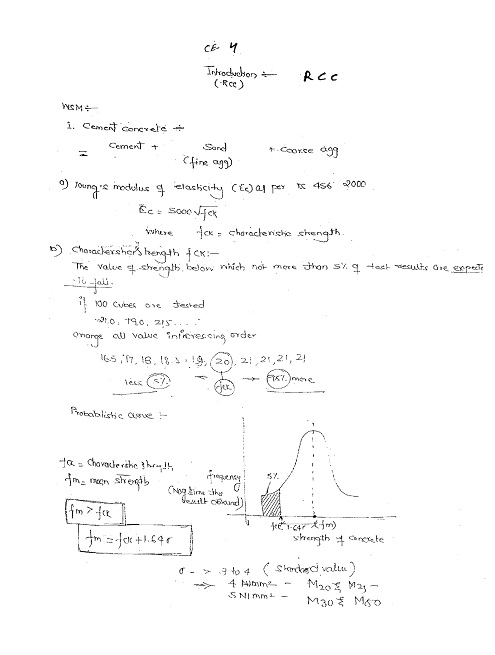 CE 4
Introduction :- RCC
(RCC)
WSM :-
1. Cement concrete :-
= Cement + Sand + Coarse agg
(fine agg)
a) Young's modulus of elasticity (Ec) as per IS 456 2000
Ec = 5000√fck
Where fck = characteristic strength.
b) Characterstic strength fck :-
The value of strength below which not more than 5% of test results are expected
to fail.
if 100 cubes are tested
21.0, 19.0, 21.5 .....
arrange all value in increasing order
16.5, 17, 18, 18.5, 19, 20, 21, 21, 21, 21
less 5% ← fck → 95% more
Probabilistic curve :-
fck = Characterstic strength
fm = mean strength
fm > fck
fm = fck + 1.64σ
frequency
(No of time the
result obtained)
5%
fck 1.64σ (fm)
strength of concrete
σ -> 3 to 4 (standard value)
→ 4 N/mm² - M20 & M25 -
5 N/mm² - M30 & M50